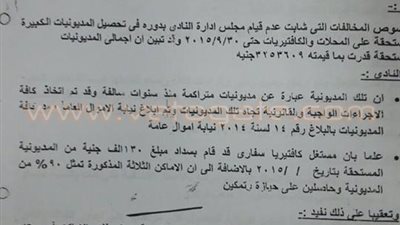 صوص المخالفات التى شابت عدم قيام مجلس ادارة النادى بدوره فى تحصيل المديونيات الكبيرة
ستحقة على المحلات والكافتيريات حتى ٢٠١٥/٩/٣٠ وأد تبين ان اجمالى المديونيات
ستحقة قدرت بما قيمته ٣٢٥٣٦٠٩جنيه
النادى :-
ان تلك المديونية عبارة عن مديونيات متراكمة منذ سنوات سالفة وقد تم اتخاذ كافة
الاجراءات الواجبة والقانونية تجاه تلك المديونيات وتم ابلاغ نيابة الاموال العامة
المديونيات بالبلاغ رقم ١٤ لسنة ٢٠١٤ نيابة اموال عامة
علما بان مستغل كافتيريا سفارى قد قام بسداد مبلغ ١٣٠الف جنية من المديونية
المستحقة بتاريخ / /٢٠١٥ بالاضافة الى ان الاماكن الثلاثة المذكورة تمثل ٩٠% من
المديونية وحاصلين على حيازة وتمكين
وتعقيبا على ذلك نفيد :-